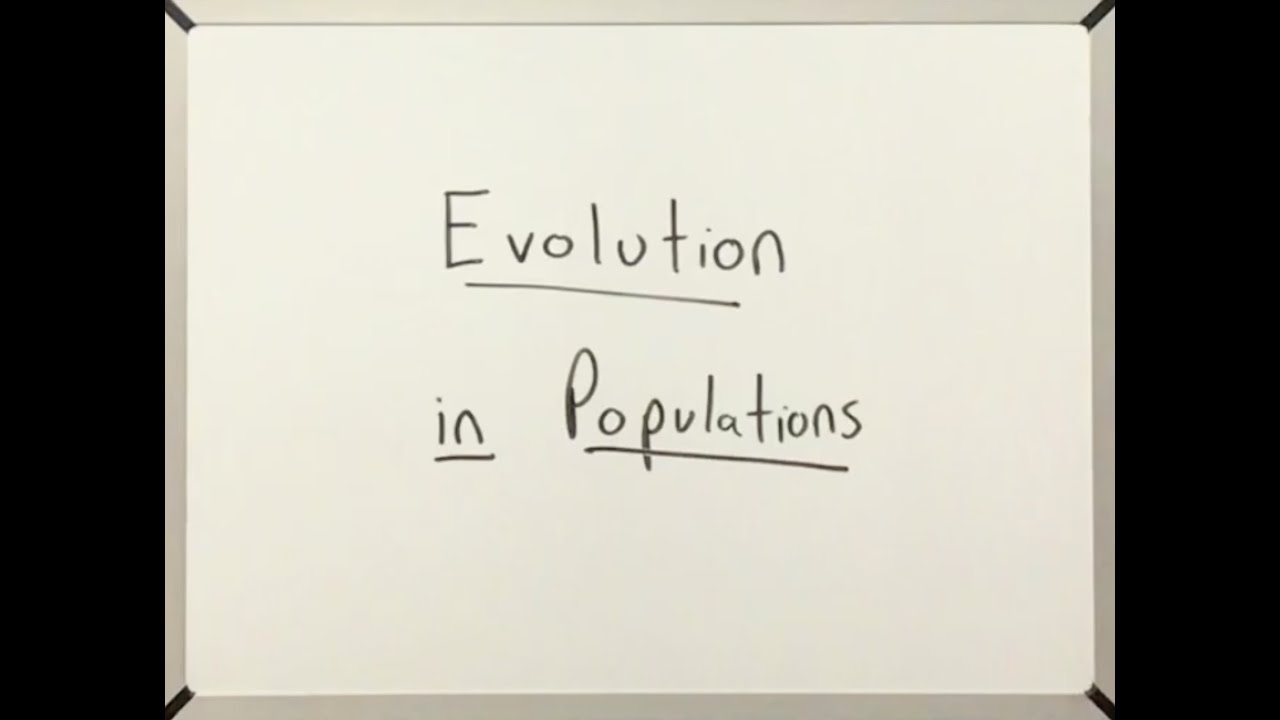 Evolution
in Populations